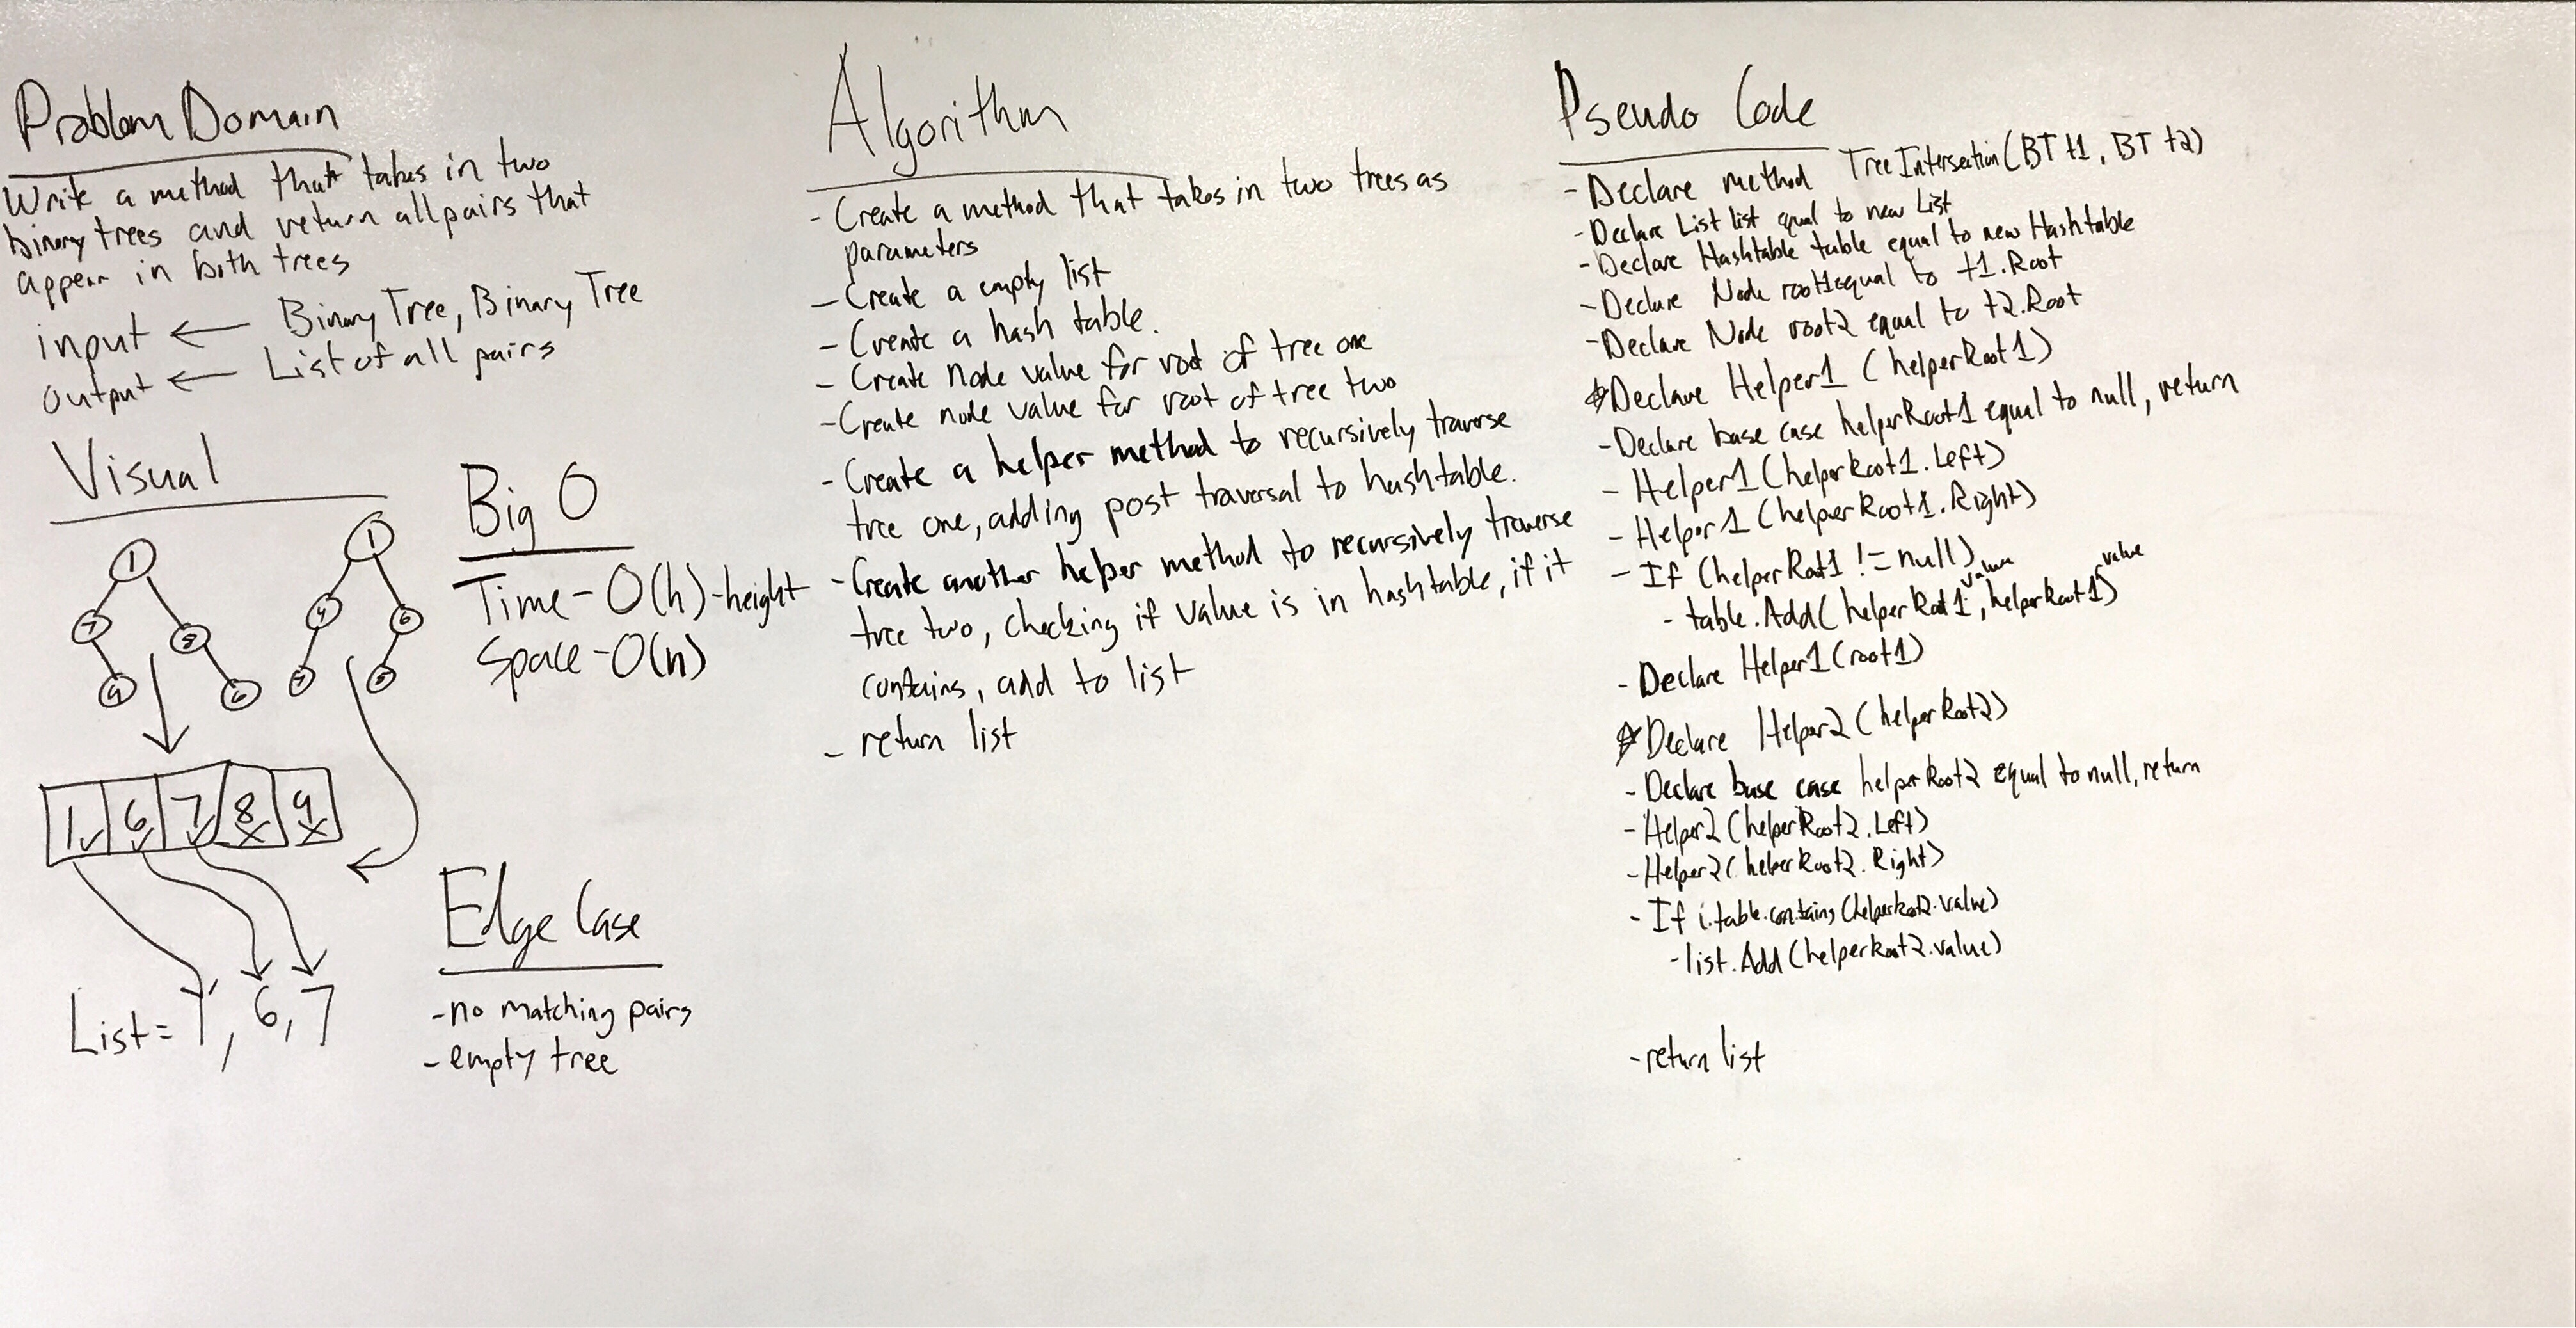 Problem Domain
Write a method that takes in two
binary trees and return all pairs that
appear in both trees
input ← Binary Tree, Binary Tree
output ← List of all pairs
Visual
1
7
8
9
6
1
4
6
7
1 6 7 8 9
List = 1, 6, 7
Big O
Time - O(h) - height
Space - O(n)
Edge Case
- no matching pairs
- empty tree
Algorithm
- Create a method that takes in two trees as
parameters
- Create a empty list
- Create a hash table.
- Create node value for root of tree one
- Create node value for root of tree two
- Create a helper method to recursively traverse
tree one, adding post traversal to hashtable.
- Create another helper method to recursively traverse
tree two, checking if value is in hashtable, if it
contains, add to list
- return list
Pseudo Code
- Declare method TreeIntersection(BT t1, BT t2)
- Declare List list equal to new List
- Declare Hashtable table equal to new Hashtable
- Declare Node root1 equal to t1.Root
- Declare Node root2 equal to t2.Root
* Declare Helper1 (helperRoot1)
- Declare base case helperRoot1 equal to null, return
- Helper1(helperRoot1.Left)
- Helper1(helperRoot1.Right)
- If (helperRoot1 != null)
- table.Add(helperRoot1.value, helperRoot1.value)
- Declare Helper1(root1)
* Declare Helper2(helperRoot2)
- Declare base case helperRoot2 equal to null, return
- Helper2(helperRoot2.Left)
- Helper2(helperRoot2.Right)
- If i.table.contains(helperRoot2.value)
- list.Add(helperRoot2.value)
- return list